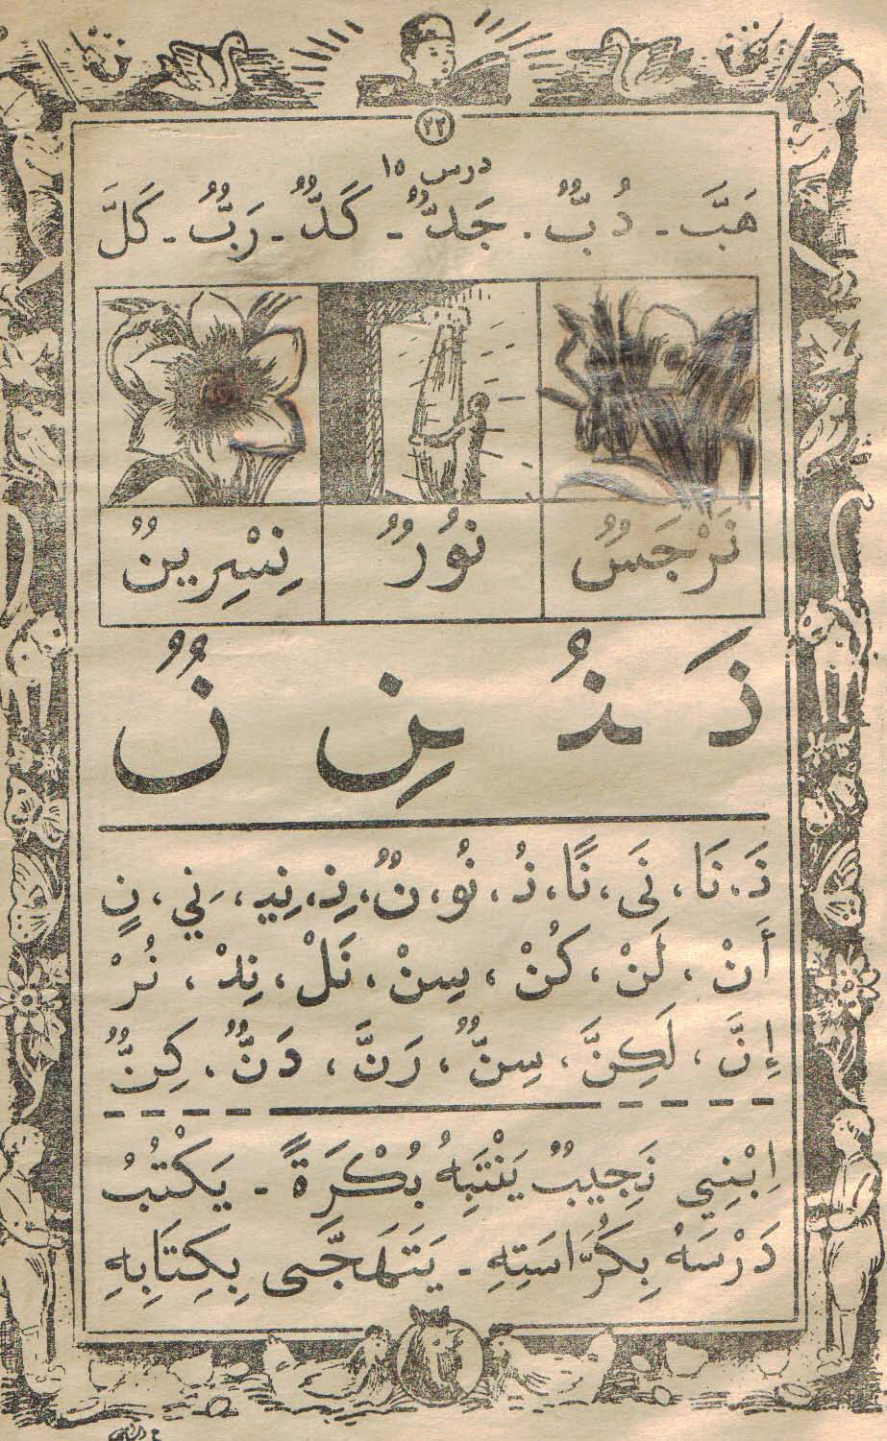 ٢٢
درس ١٥
هَبَّ - دُبٌّ - جَدٌّ - كَدٌّ - رَبٌّ - كَلَّ
نَرْجَسٌ نُورٌ نِسْرِينٌ
نَـ ـنُـ ـنِ نٌ
نَـ، نَا، نَى، نًا، نُـ، نُو، نٌ، نِـ، نِيـ، نِي، نٍ
أَنْ، لَنْ، كُنْ، سِنْ، نَلْ، نِدْ، نُرْ
إِنَّ، لَكِنَّ، سِنٌّ، رَنَّ، دَنٌّ، كِنٌّ
اِبْنِي نَجِيبٌ يَنْتَبِهُ بُكْرَةً - يَكْتُبُ
دَرْسَهُ بِكُرَّاسَتِهِ - يَتَهَجَّى بِكِتَابِهِ